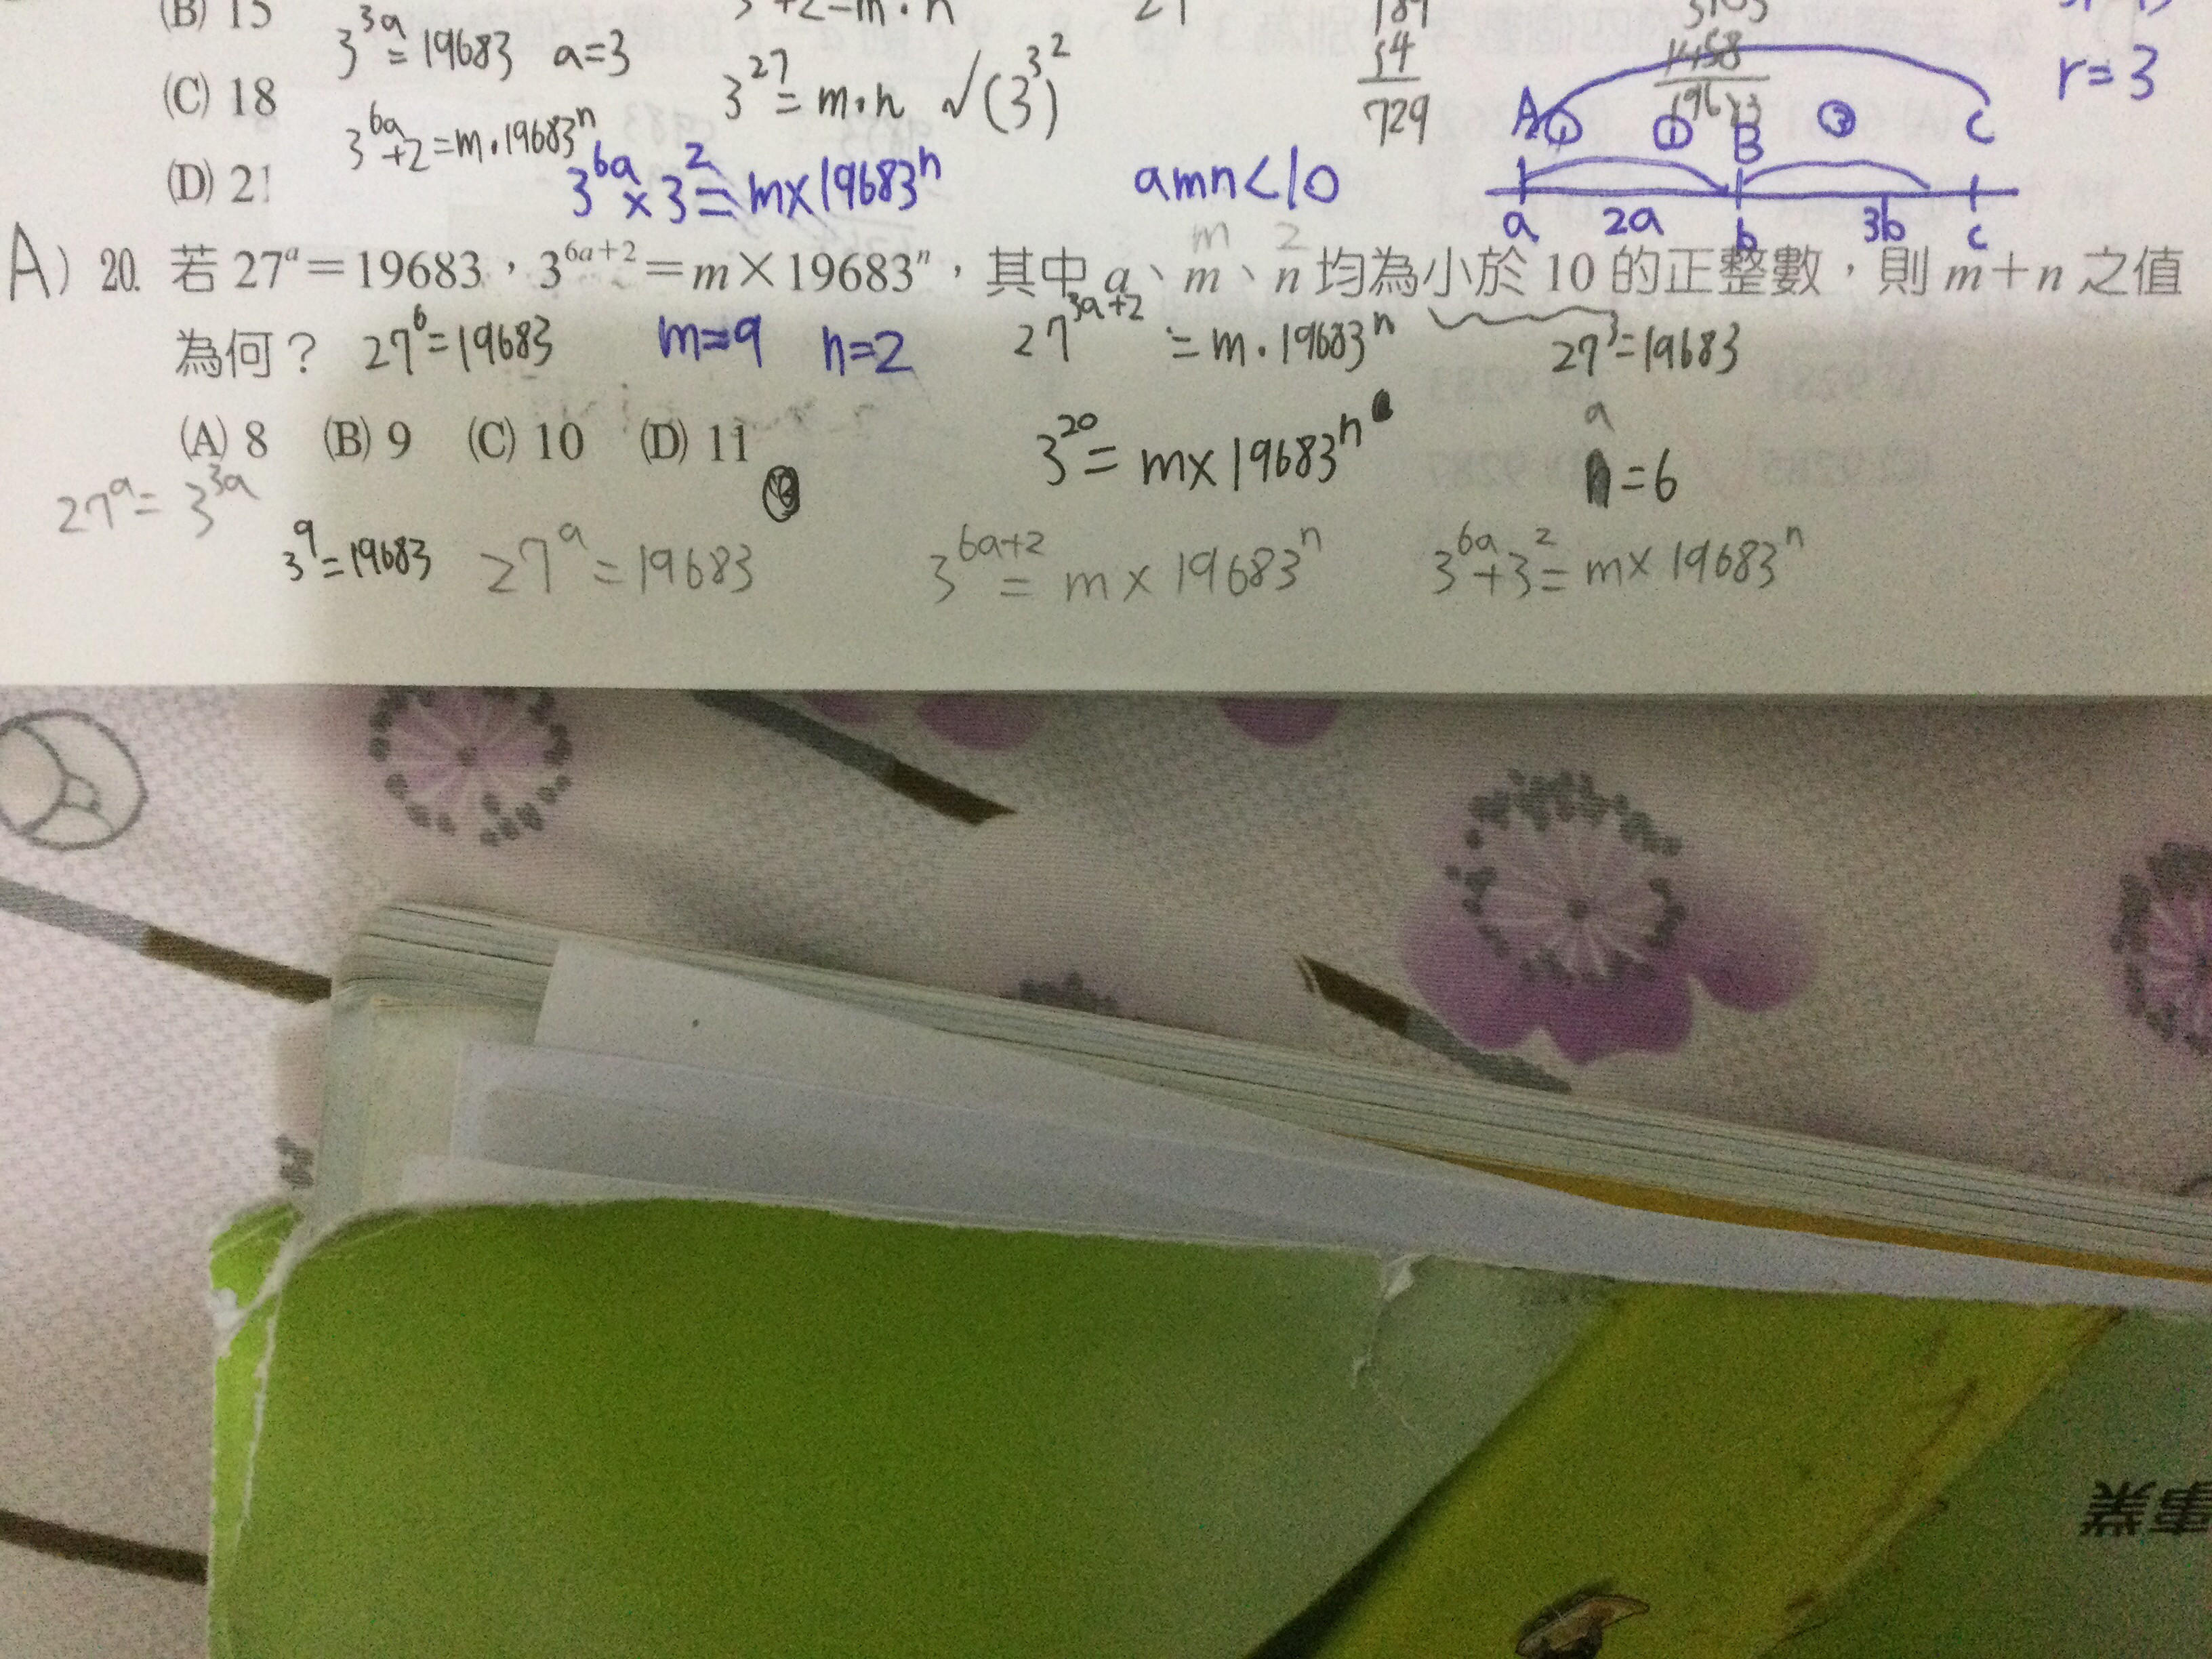 (B) 15
3^{3a} = 19683 a=3
(C) 18
3^{27} = m·n √(3^3)^2
54
729
1458
19683
r=3
3^{6a}+2=m·19683^n
A ① ① B ③ C
(D) 21
3^{6a}×3^2=m×19683^n
amn<10
a 2a b 3b c
m 2
A) 20. 若 27^a=19683,3^{6a+2}=m×19683^n,其中 a、m、n 均為小於 10 的正整數,則 m+n 之值
為何? 27^6=19683 m=9 n=2 27^{3a+2}=m·19683^n 27^3=19683
(A) 8 (B) 9 (C) 10 (D) 11
3^{20}=m×19683^n
a
=6
27^a=3^{3a}
3^9=19683 27^a=19683 3^{6a+2}=m×19683^n 3^{6a}+3^2=m×19683^n
事業